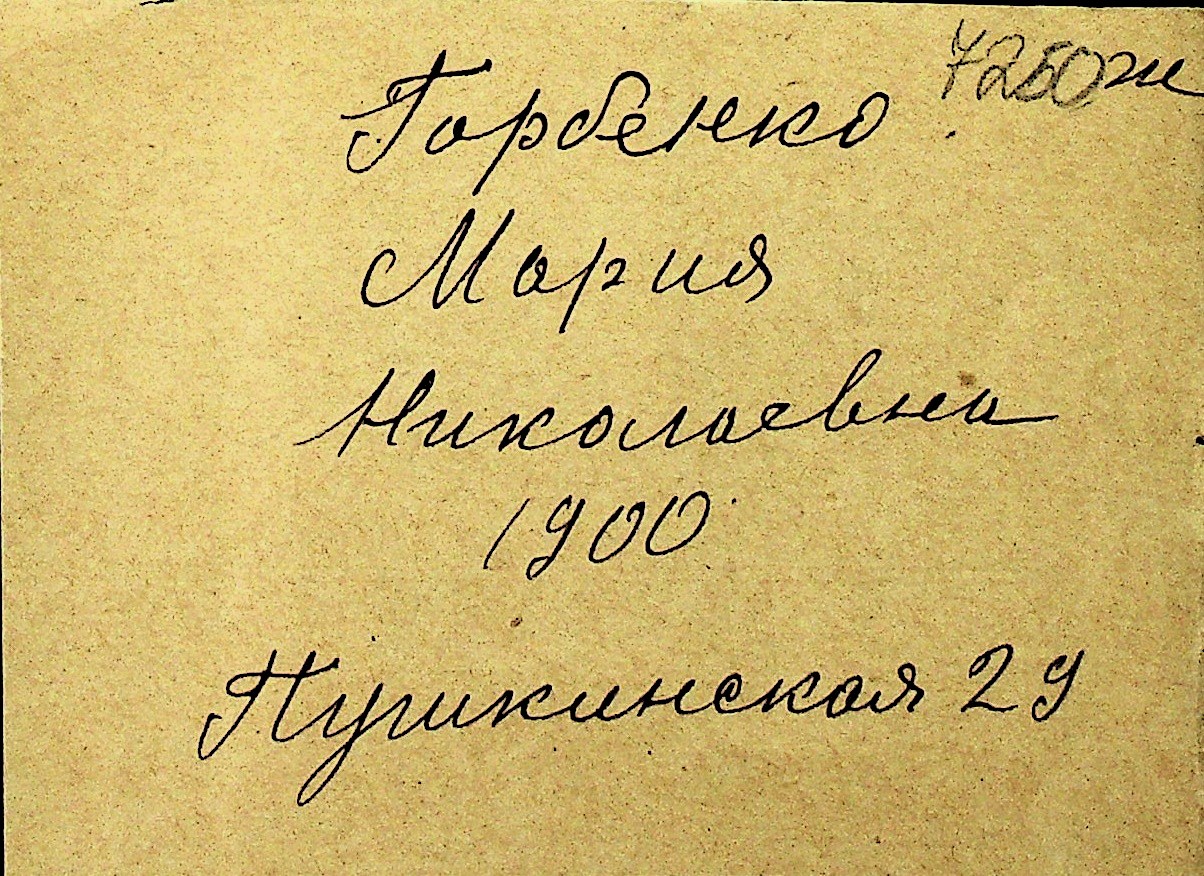 7250ж
Горбенко
Мария
Николаевна
1900
Пушкинская 29